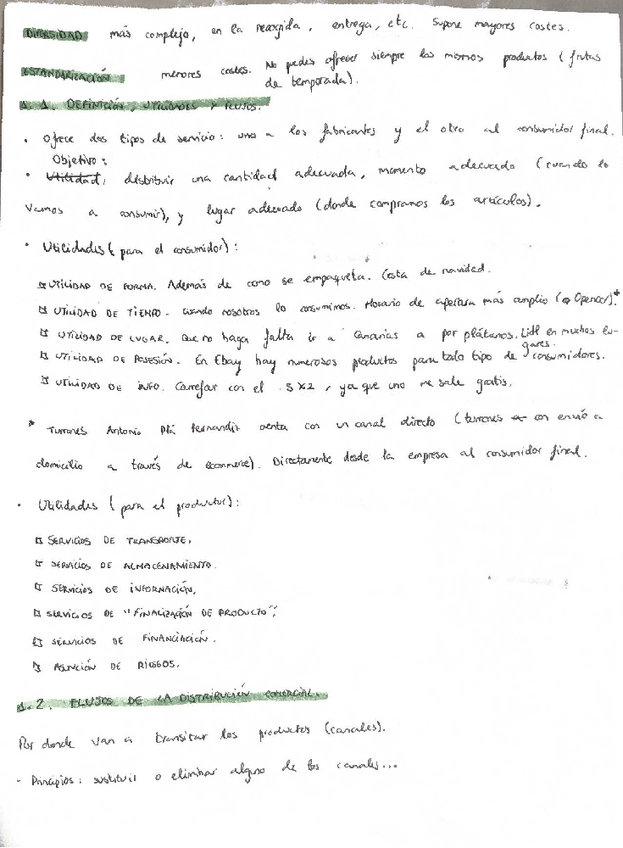 DIVERSIDAD más complejo, en la recogida, entrega, etc. Supone mayores costes.
ESTANDARIZACIÓN menores costes. No puedes ofrecer siempre los mismos productos (frutas
de temporada).
1.1. DEFINICIÓN, UTILIDADES Y FLUJOS.
· Ofrece dos tipos de servicio: uno a los fabricantes y el otro al consumidor final.
Objetivo:
· Utilidad: distribuir una cantidad adecuada, momento adecuado (cuando lo
vamos a consumir), y lugar adecuado (donde compramos los artículos).
· Utilidades (para el consumidor):
UTILIDAD DE FORMA. Además de como se empaqueta. Cesta de navidad.
UTILIDAD DE TIEMPO. cuando nosotros lo consumimos. Horario de apertura más amplio (Opencor).*
UTILIDAD DE LUGAR. Que no haga falta ir a Canarias a por plátanos. Lidl en muchos lu-
gares.
UTILIDAD DE POSESIÓN. En Ebay hay numerosos productos para todo tipo de consumidores.
UTILIDAD DE INFO. Carrefour con el 3X2, ya que uno me sale gratis.
* Turrones Antonio cuenta con un canal directo (turrones con envío a
domicilio a través de ecommerce). Directamente desde la empresa al consumidor final.
· Utilidades (para el productor):
SERVICIOS DE TRANSPORTE.
SERVICIOS DE ALMACENAMIENTO.
SERVICIOS DE INFORMACIÓN.
SERVICIOS DE "FINALIZACIÓN DE PRODUCTO";
SERVICIOS DE FINANCIACIÓN.
ASUNCIÓN DE RIESGOS.
1.2. FLUJOS DE LA DISTRIBUCIÓN COMERCIAL.
Por donde van a transitar los productos (canales).
- Principios: sustituir o eliminar alguno de los canales...